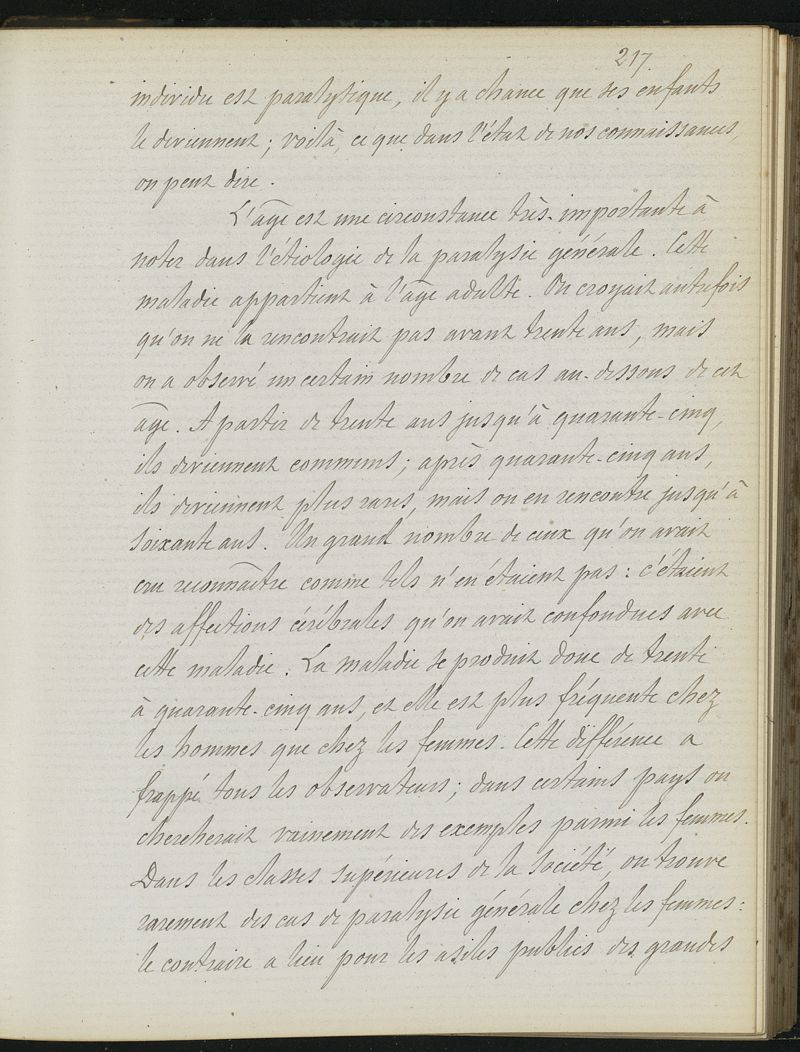 217
individu est paralytique, il y a chance que ses enfants
le deviennent ; voilà, ce que dans l'état de nos connaissances,
on peut dire.
L'âge est une circonstance très-importante à
noter dans l'étiologie de la paralysie générale. Cette
maladie appartient à l'âge adulte. On croyait autrefois
qu'on ne la rencontrait pas avant trente ans, mais
on a observé un certain nombre de cas au-dessous de cet
âge. A partir de trente ans jusqu'à quarante-cinq,
ils deviennent communs ; après quarante-cinq ans,
ils deviennent plus rares, mais on en rencontre jusqu'à
soixante ans. Un grand nombre de ceux qu'on avait
cru reconnaître comme tels n'en étaient pas : c'étaient
des affections cérébrales qu'on avait confondues avec
cette maladie. La maladie se produit donc de trente
à quarante-cinq ans, et elle est plus fréquente chez
les hommes que chez les femmes. Cette différence a
frappé tous les observateurs ; dans certains pays on
chercherait vainement des exemples parmi les femmes.
Dans les classes supérieures de la Société, on trouve
rarement des cas de paralysie générale chez les femmes :
le contraire a lieu pour les asiles publics des grandes